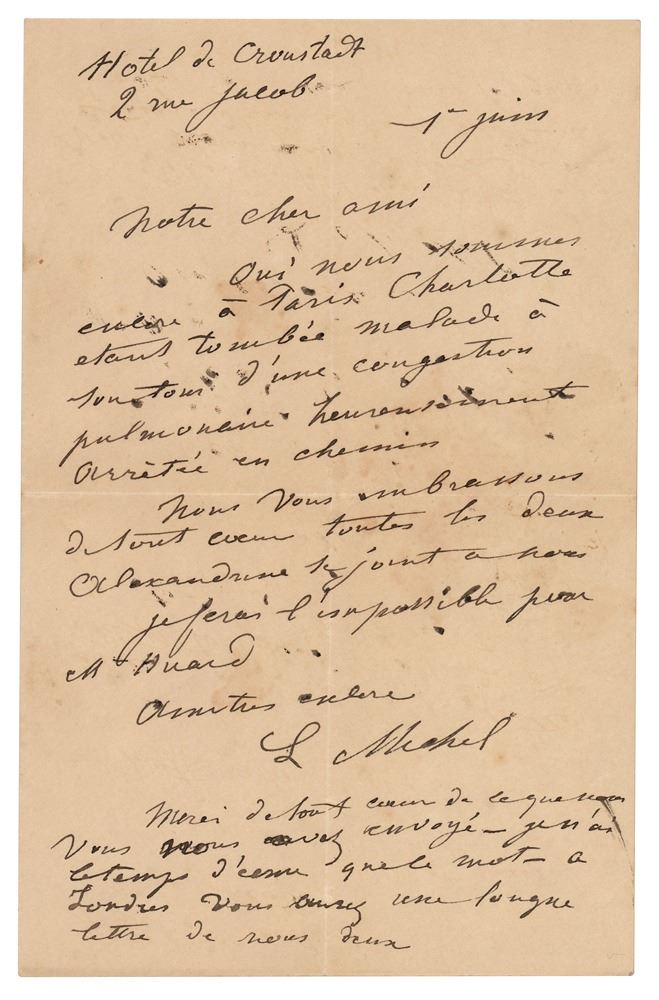 Hotel de Cronstadt
2 rue Jacob
1er juin
Notre cher ami
Oui nous sommes
encore à Paris Charlotte
etant tombée malade à
son tour d'une congestion
pulmonaire heureusement
Arrêtée en chemin
Nous Vous embrassons
de tout cœur toutes les deux
Alexandrine se joint a nous
je ferai l'impossible pour
Mr Huard
Amitiés encore
L Michel
Merci de tout cœur de ce que nous
Vous nous avez envoyé — je n'ai
le temps d'ecrire que le mot — a
Londres Vous aurez une longue
lettre de nous deux